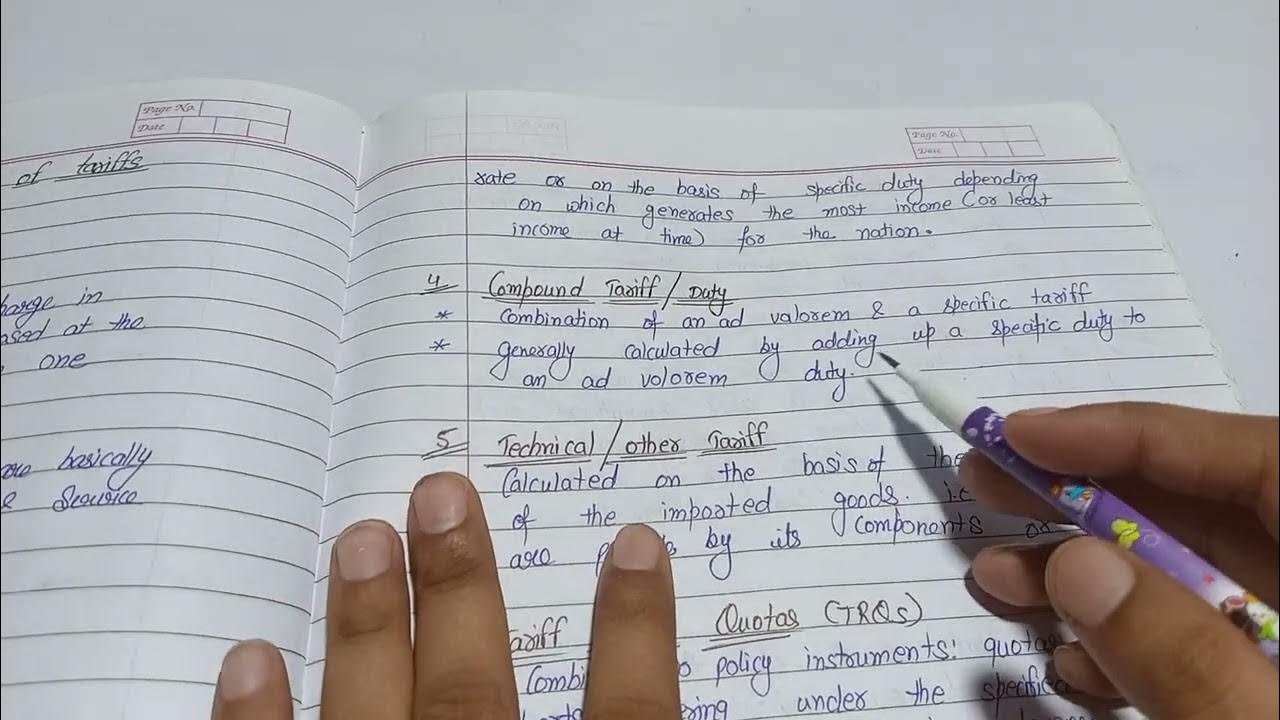 Page No.
Date
of tariffs
harge in
ased at the
one
basically
& Service
Page No.
Date
rate or on the basis of specific duty depending
on which generates the most income (or least
income at time) for the nation.
4 Compound Tariff / Duty
* Combination of an ad valorem & a specific tariff
* generally calculated by adding up a specific duty to
an ad volorem duty.
5 Technical / other Tariff
Calculated on the basis of the
of the imported goods. i.e
are by its components or
ariff Quotas (TRQs)
Combi policy instruments: quotas
ering under the specific